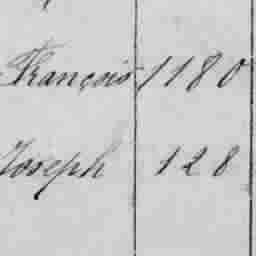 François 1180
Joseph 128